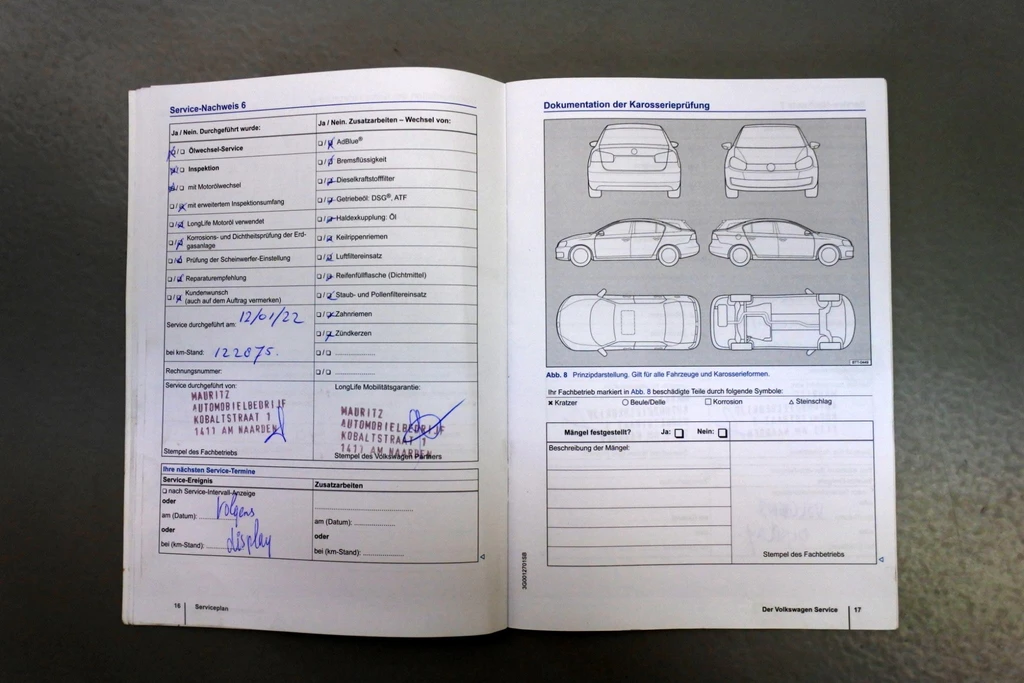 Service-Nachweis 6
Ja / Nein. Durchgeführt wurde:
Ja / Nein. Zusatzarbeiten – Wechsel von:
Ölwechsel-Service
Inspektion
mit Motorölwechsel
mit erweitertem Inspektionsumfang
LongLife Motoröl verwendet
Korrosions- und Dichtheitsprüfung der Erd-
gasanlage
Prüfung der Scheinwerfer-Einstellung
Reparaturempfehlung
Kundenwunsch
(auch auf dem Auftrag vermerken)
Service durchgeführt am: 12/01/22
bei km-Stand: 122875.
Rechnungsnummer:
AdBlue®
Bremsflüssigkeit
Dieselkraftstofffilter
Getriebeöl: DSG®, ATF
Haldexkupplung: Öl
Keilrippenriemen
Luftfiltereinsatz
Reifenfüllflasche (Dichtmittel)
Staub- und Pollenfiltereinsatz
Zahnriemen
Zündkerzen
Service durchgeführt von:
MAURITZ
AUTOMOBIELBEDRIJF
KOBALTSTRAAT 1
1411 AM NAARDEN
Stempel des Fachbetriebs
LongLife Mobilitätsgarantie:
MAURITZ
AUTOMOBIELBEDRIJF
KOBALTSTRAAT 1
1411 AM NAARDEN
Stempel des Volkswagen Partners
Ihre nächsten Service-Termine
Service-Ereignis
nach Service-Intervall-Anzeige
oder
am (Datum): Volgens
oder
bei (km-Stand): display
Zusatzarbeiten
am (Datum):
oder
bei (km-Stand):
16 Serviceplan
Dokumentation der Karosserieprüfung
Abb. 8 Prinzipdarstellung. Gilt für alle Fahrzeuge und Karosserieformen.
Ihr Fachbetrieb markiert in Abb. 8 beschädigte Teile durch folgende Symbole:
Kratzer Beule/Delle Korrosion Steinschlag
Mängel festgestellt? Ja: Nein:
Beschreibung der Mängel:
Stempel des Fachbetriebs
3G0012701SB
Der Volkswagen Service 17